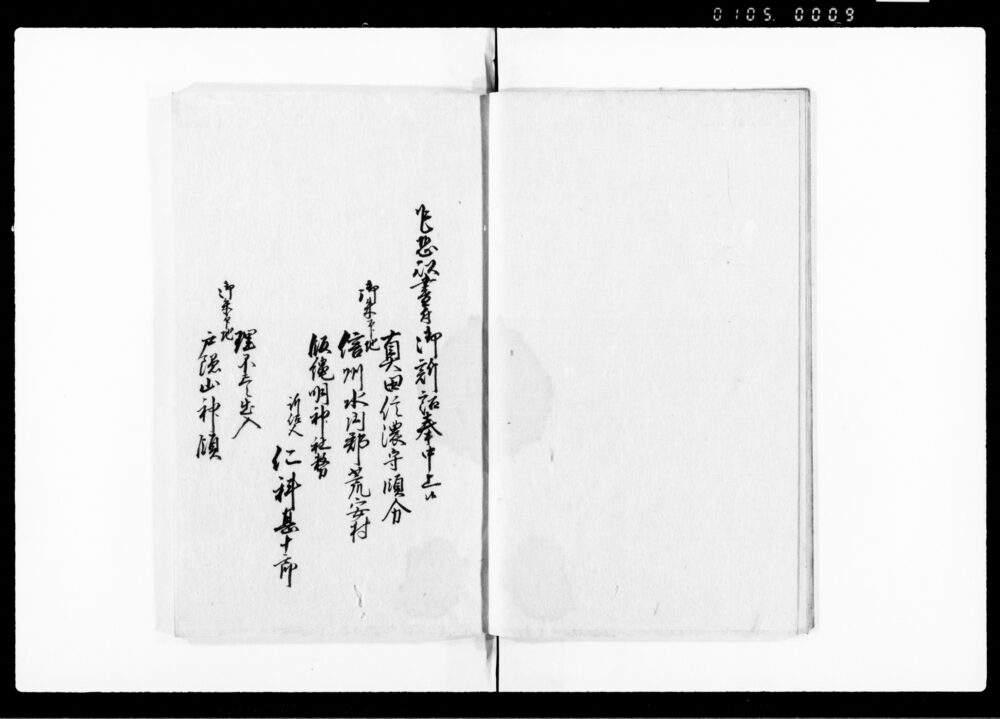 0105. 0009
乍恐以書付御訴詔奉申上候
真田信濃守領分
御朱印地
信州水内郡荒安村
飯縄明神社務
訴訟人
仁科甚十郎
理不尽出入
御朱印地
戸隠山神領